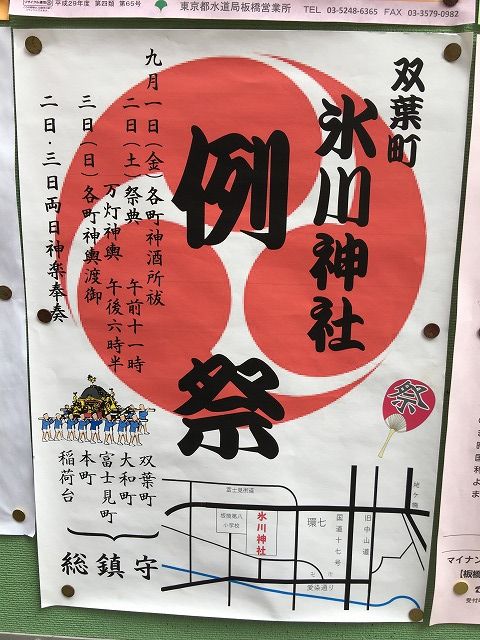 平成29年度 第四類 第65号
東京都水道局板橋営業所
TEL 03-5248-6365 FAX 03-3579-0982
双葉町
氷川神社
例祭
九月一日(金)各町神酒所祓
二日(土)祭典 午前十一時
万灯神輿 午後六時半
三日(日)各町神輿渡御
二日・三日両日神楽奉奏
祭
双葉町
大和町
富士見町
本町
稲荷台
総鎮守
富士見街道
板橋第八
小学校
氷川神社
環七
国道十七号
旧中山道
愛染通り
マイナン